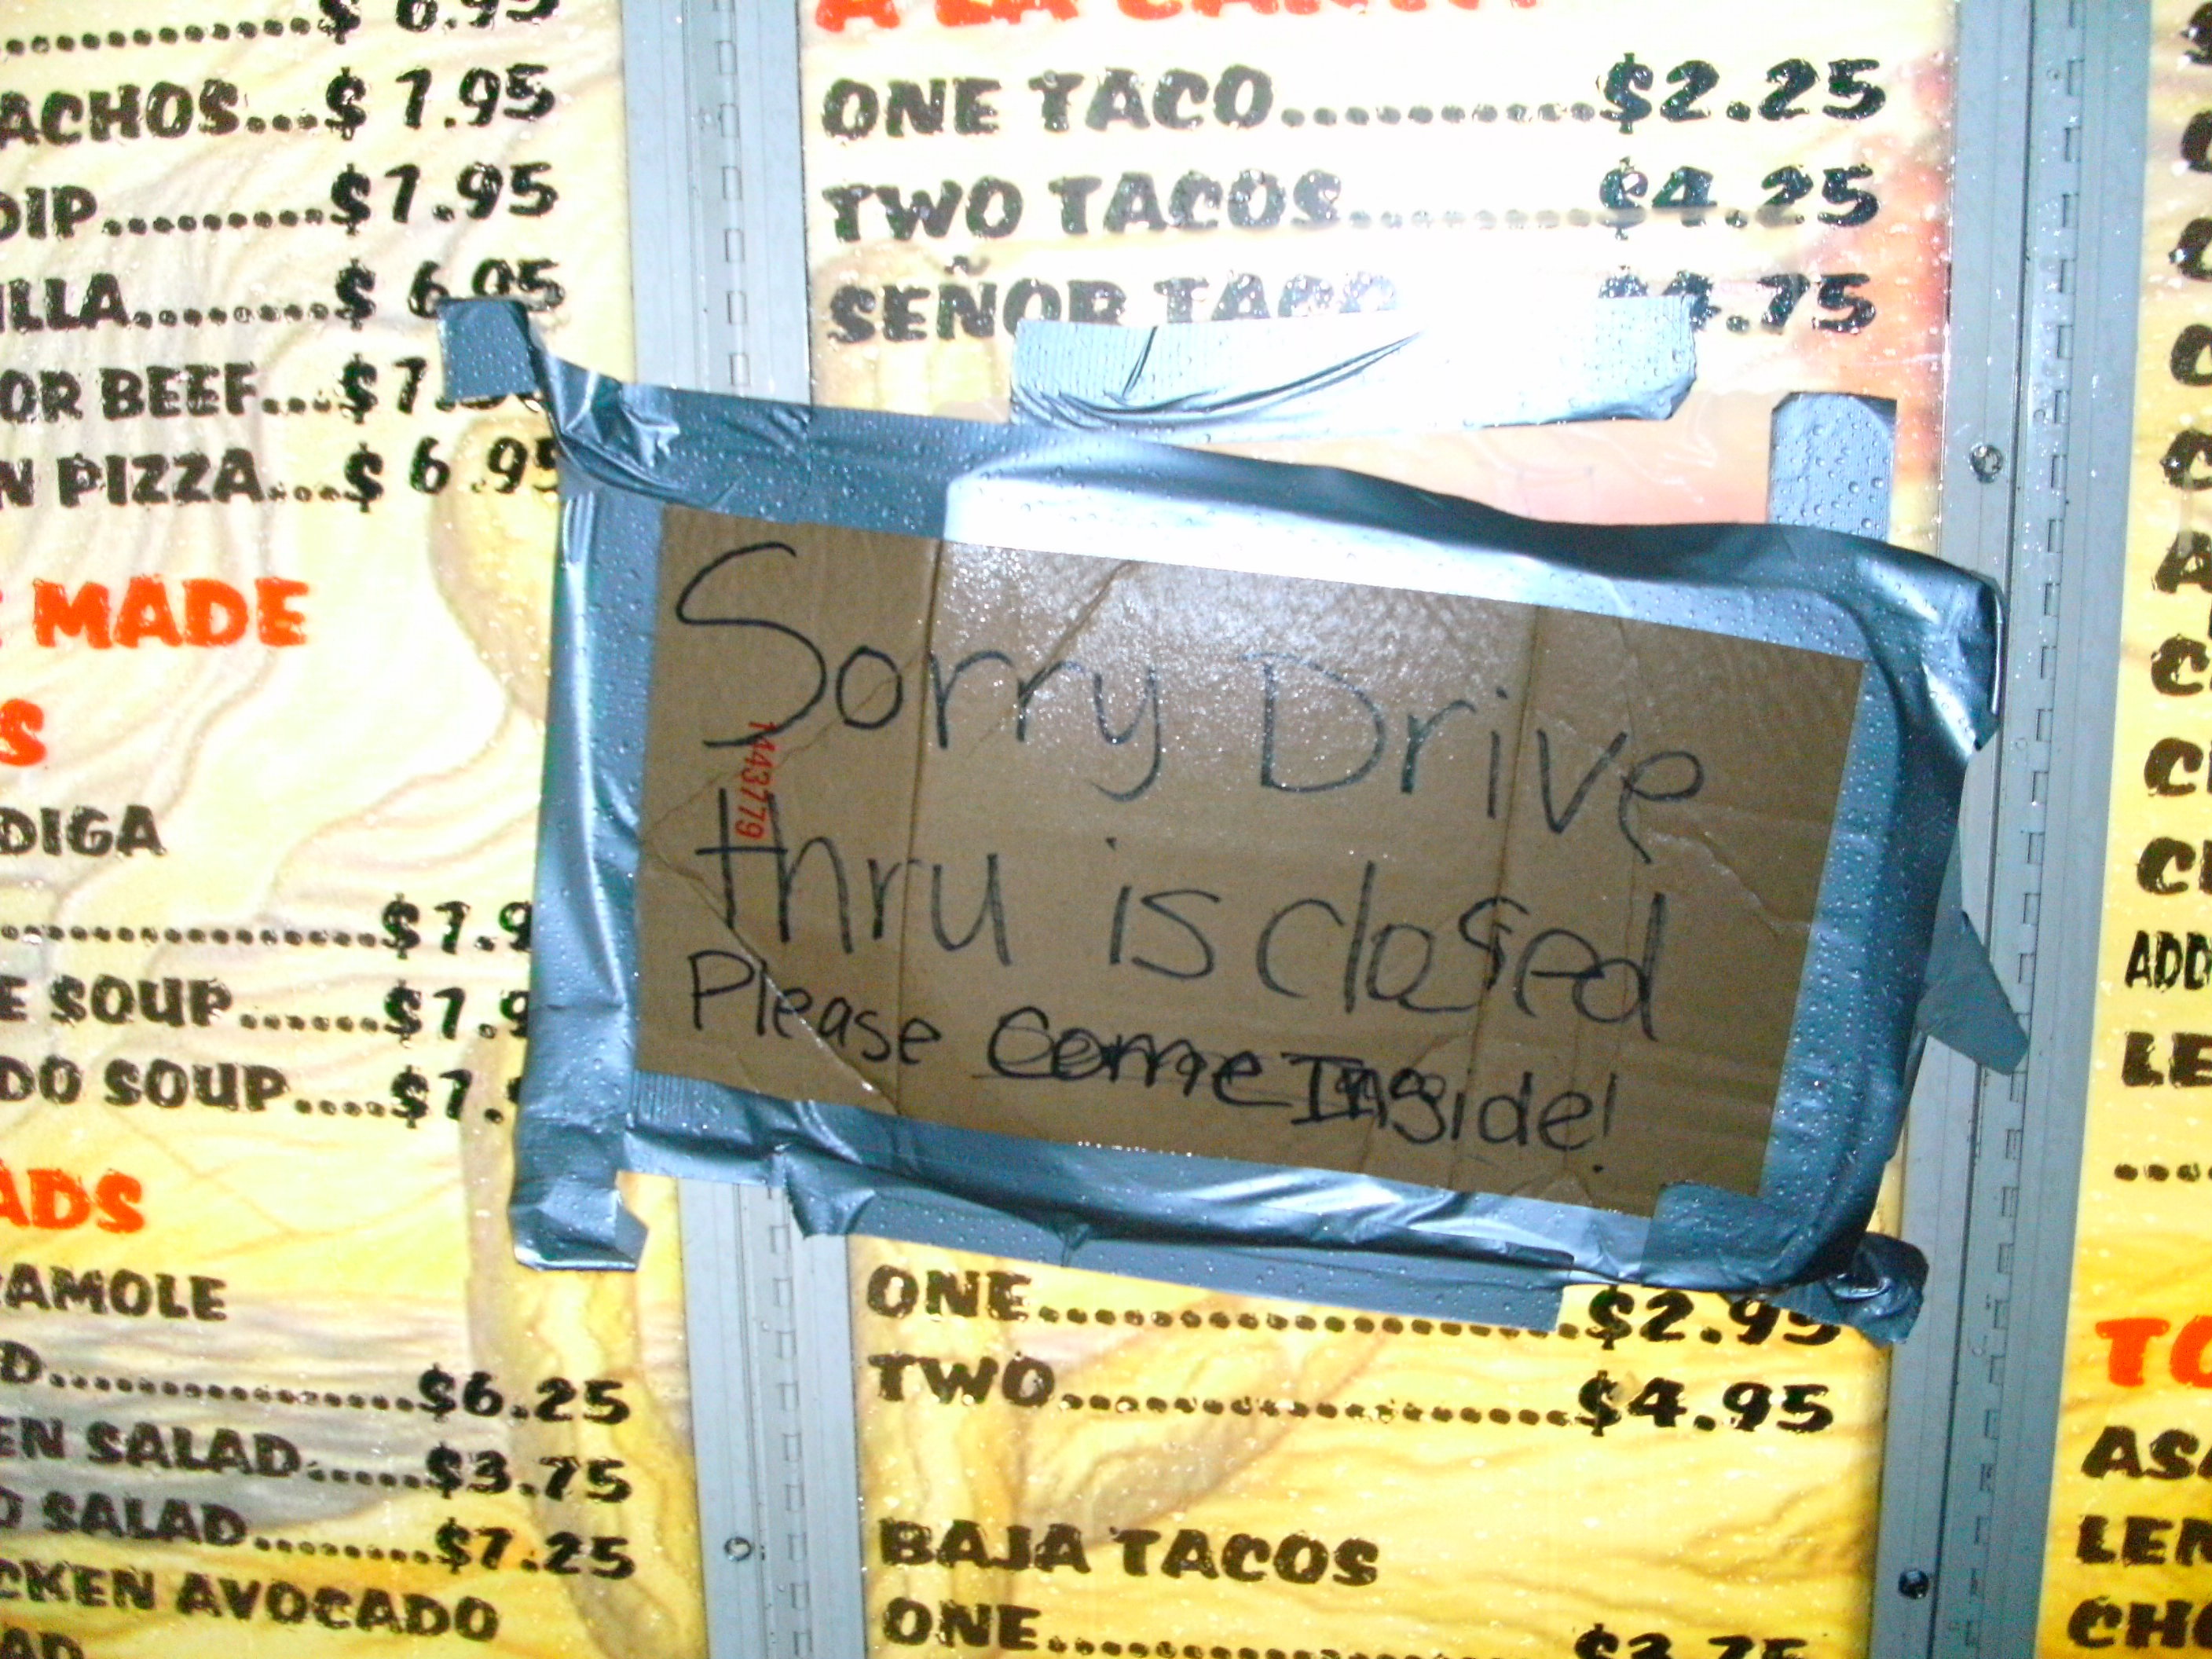 ACHOS...$ 7.95
DIP.........$7.95
ILLA........$ 6.95
OR BEEF...$7.
N PIZZA....$ 6.95
MADE
S
DIGA
$7.9
E SOUP......$7.9
DO SOUP....$7.
ADS
AMOLE
D................$6.25
EN SALAD.....$3.75
O SALAD........$7.25
CKEN AVOCADO
AD
A LA CARTA
ONE TACO............$2.25
TWO TACOS.........$4.25
SEÑOR TACO $4.75
Sorry Drive
thru is closed
Please Come Inside!
1443779
ONE......................$2.95
TWO.....................$4.95
BAJA TACOS
ONE......................$3.75
ADD
LE
TO
ASA
LEN
CHO